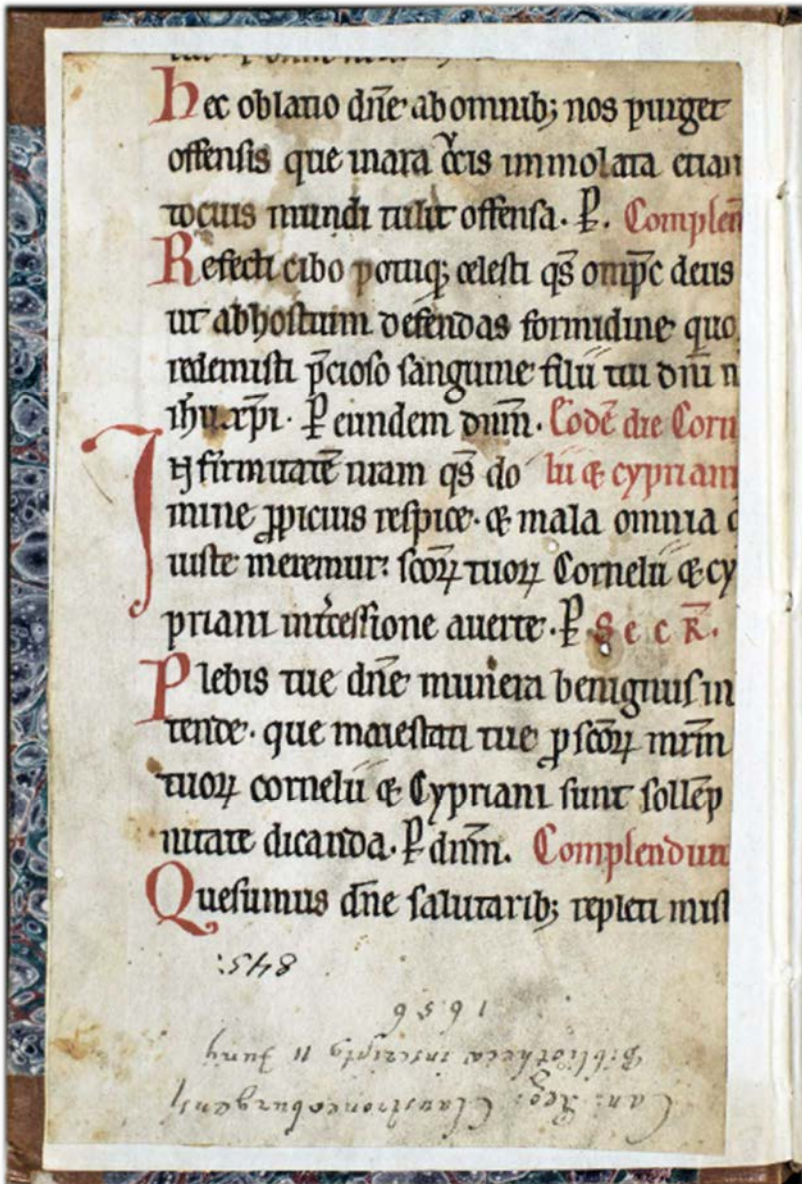 Hec oblatio dn̄e ab omnib; nos purget
offensis que in ara c̊cis immolata etiam
tocius mundi tulit offensa. P̱. Complen̄
Refecti cibo potuq; celesti qs̄ omp̄c deus
ut ab hostium defendas formidine quo
redemisti p̄cioso sanguine filii tui dn̄i n
ihu xp̄i. P̱ eundem dnm̄. Eodē die Corn
INfirmitatē nram qs̄ do lii & cypriani
mine ꝓpicius respice. & mala omnia q
iuste meremur: scōꝝ tuoꝝ Cornelii & cy
priani int̄cessione auerte. P̱ Secr̄.
Plebis tue dn̄e munera benignus in
tende. que maiestati tue ꝓ scōꝝ mr̄m
tuoꝝ cornelii & Cypriani sunt sollēp
nitate dicanda. P̱ dnm̄. Complendum
Quesumus dn̄e salutarib; repleti mist
845.
1656
Bibliotheca inscripty 11 Juny
Can: Reg: Claustroneoburgensis